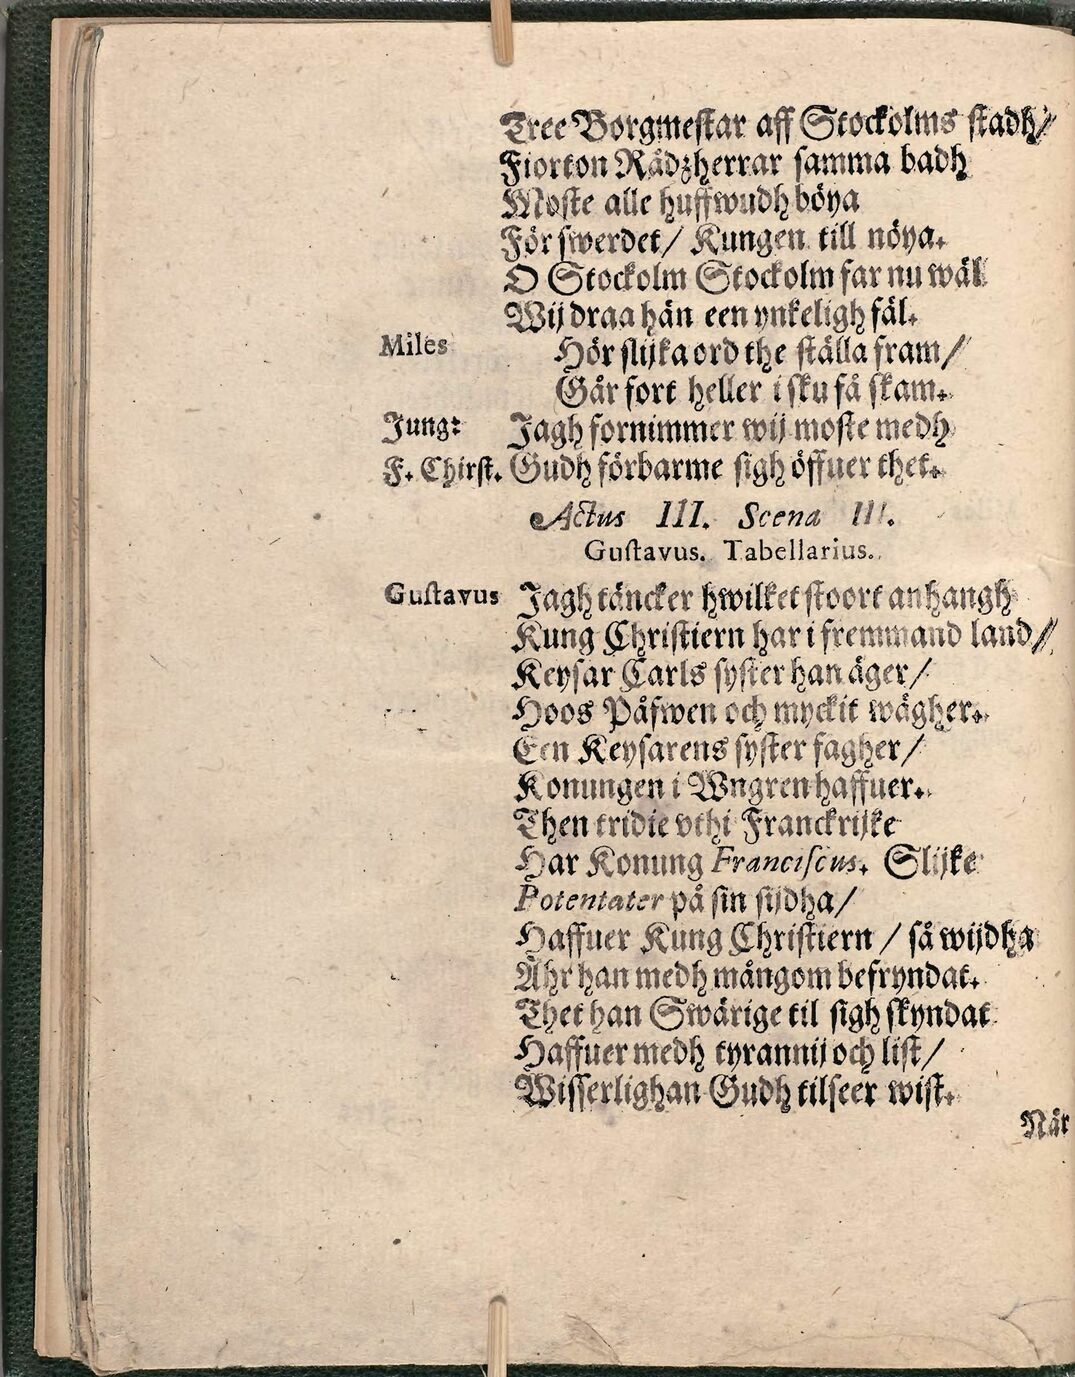 Tree Borgmestar aff Stockolms stadh/
Fiorton Rådzherrar samma badh
Moste alle huffwudh böya
För swerdet/ Kungen till nöya.
O Stockolm Stockolm far nu wäl
Wij draa hän een ynkeligh fäl.
Miles Hör slijka ord the ställa fram/
Går fort heller i sku få skam.
Jung: Jagh fornimmer wij moste medh
F. Chirst. Gudh förbarme sigh öffuer thet.
Actus III. Scena III.
Gustavus. Tabellarius.
Gustavus Jagh täncker hwilket stoort anhangh
Kung Christiern har i fremmand land/
Keysar Carls syster han äger/
Hoos Påfwen och myckit wägher.
Een Keysarens syster fagher/
Konungen i Wngren haffuer.
Then tridie vthi Franckrijke
Har Konung Franciscus. Slijke
Potentater på sin sijdha/
Haffuer Kung Christiern / så wijdha
Ähr han medh mångom befryndat.
Thet han Swärige til sigh skyndat
Haffuer medh tyrannij och list/
Wisserlighan Gudh tilseer wist.
När